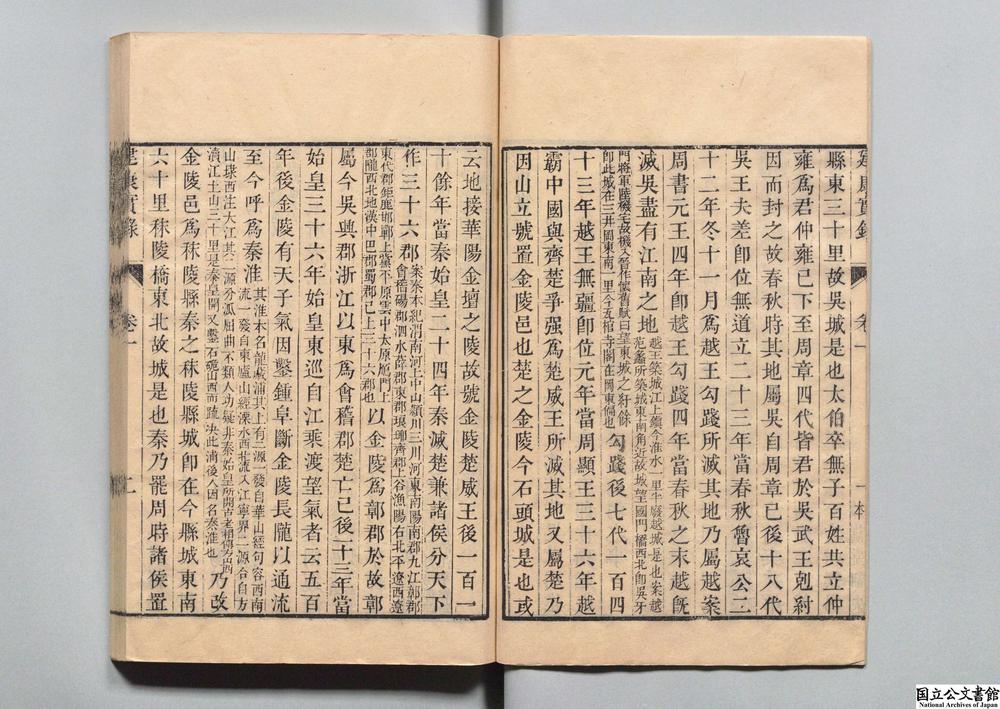 建康實錄 卷一 一 本
縣東三十里故吳城是也太伯卒無子百姓共立仲
雍爲君仲雍已下至周章四代皆君於吳武王剋紂
因而封之故春秋時其地屬吳自周章已後十八代
吳王夫差卽位無道立二十三年當春秋魯哀公二
十二年冬十一月爲越王勾踐所滅其地乃屬越案
周書元王四年卽越王勾踐四年當春秋之末越旣
滅吳盡有江南之地越王築城江上鎭今淮水一里半廢越城是也案越
范蠡所築城東南角近故城望國門橋西北卽吳牙
門將軍陸機宅故機入晉作懷舊賦曰望東城之紆餘
卽此城在三井岡東南一里今瓦棺寺閣在岡東偏也勾踐後七代一百四
十三年越王無疆卽位元年當周顯王三十六年越
霸中國與齊楚爭强爲楚威王所滅其地又屬楚乃
因山立號置金陵邑也楚之金陵今石頭城是也或
云地接華陽金壇之陵故號金陵楚威王後一百一
十餘年當秦始皇二十四年秦滅楚兼諸侯分天下
作三十六郡案秦本紀渭南河上中山潁川三川河東南陽南郡九江鄣郡
會稽碭郡泗水薛郡東郡琅琊齊郡上谷漁陽右北平遼西遼
東代郡鉅鹿邯鄲上黨太原雲中太原鴈門上
郡隴西北地漢中巴郡蜀郡已上三十六郡也以金陵爲鄣郡於故鄣
屬今吳興郡浙江以東爲會稽郡楚亡已後十三年當
始皇三十六年始皇東巡自江乘渡望氣者云五百
年後金陵有天子氣因鑿鍾阜斷金陵長隴以通流
至今呼爲秦淮其淮本名龍藏浦其上有二源一發自華山經句容西南
流一發自東廬山經溧水西北流入江寧界二源合自方
山埭西注大江其二源分派屈曲不類人功疑非秦始皇所開古老相傳方山西
瀆江土山三十里是秦皇開又鑿石硊山西而疏決此浦後人因名秦淮也乃改
金陵邑爲秣陵縣秦之秣陵縣城卽在今縣城東南
六十里秣陵橋東北故城是也秦乃罷周時諸侯置
建康實錄 卷一 二
国立公文書館
National Archives of Japan